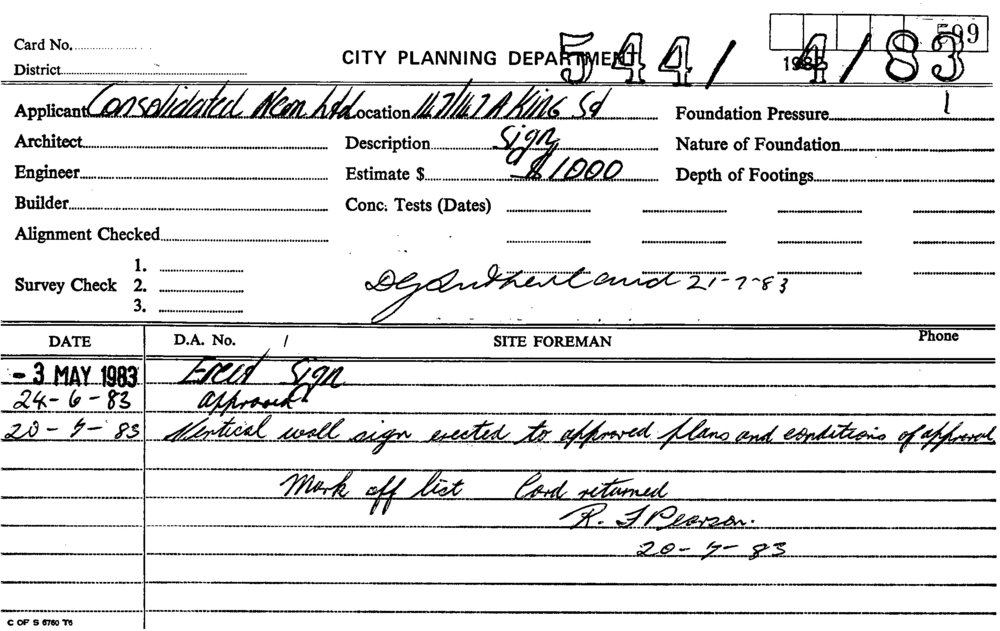 Card No.
CITY PLANNING DEPARTMENT
544/4/83
District
Applicant Consolidated Neon Ltd Location 147/147A King St Foundation Pressure
Architect Description Sign Nature of Foundation
Engineer Estimate $ $1000 Depth of Footings
Builder Conc. Tests (Dates)
Alignment Checked
1.
Survey Check 2. 21-7-83
3.
DATE D.A. No. / SITE FOREMAN Phone
- 3 MAY 1983 Erect Sign
24-6-83 approved
20-7-83 Vertical wall sign erected to approved plans and conditions of approval
Mark off list Card returned
R. F Pearson.
20-7-83
C OF S 6760 T6